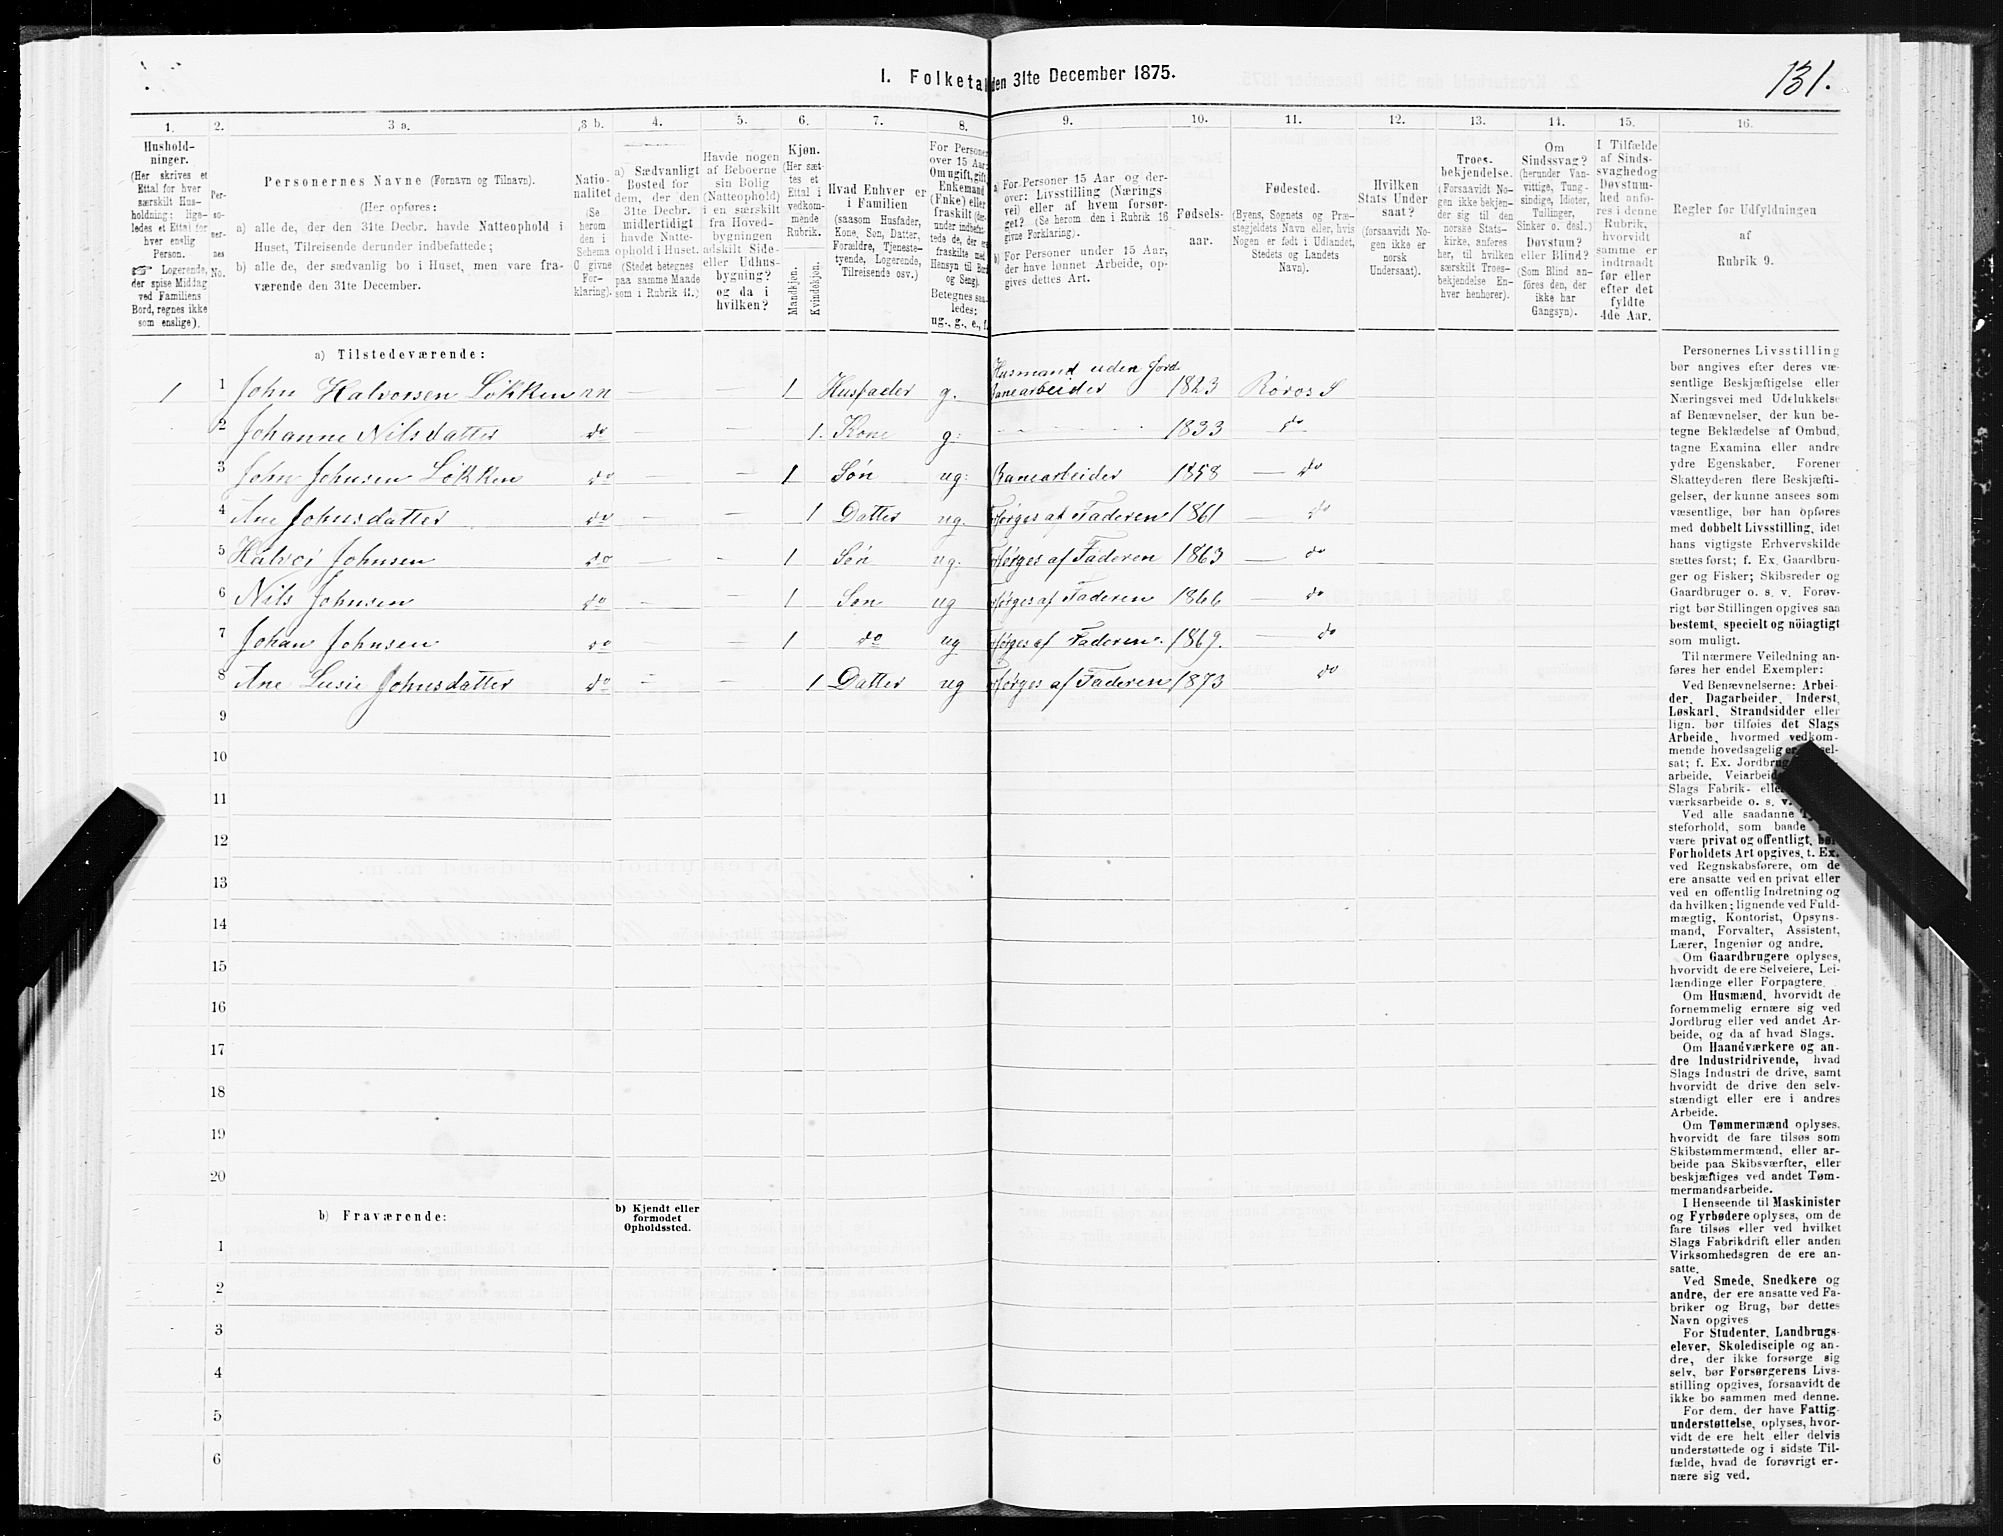 1. Folketal den 31te December 1875.
131.
1.
2.
3 a.
3 b.
4.
5.
6.
7.
8.
9.
10.
11.
12.
13.
14.
15.
16.
Hushold-
ninger.
(Her skrives et
Ettal for hver
særskilt Hus-
holdning; lige-
ledes et Ettal for
hver enslig
Person.
☞ Logerende,
der spise Middag
ved Familiens
Bord, regnes ikke
som enslige).
Per-
so-
ner-
nes
No.
Personernes Navne (Fornavn og Tilnavn).
(Her opføres:
a) alle de, der den 31te Decbr. havde Natteophold i
Huset, Tilreisende derunder indbefattede;
b) alle de, der sædvanlig bo i Huset, men vare fra-
værende den 31te December.
Natio-
nalitet
(Se
herom
den i
Schema
O givne
For-
klaring).
a) Sædvanligt
Bosted for
dem, der den
31te Decbr.
midlertidigt
havde Natte-
ophold i Huset.
(Stedet betegnes
paa samme Maade
som i Rubrik 11.)
Havde nogen
af Beboerne
sin Bolig
(Natteophold)
i en særskilt
fra Hoved-
bygningen
adskilt Side-
eller Udhus-
bygning?
og da i
hvilken?
Kjøn.
(Her sæt-
tes et
Ettal i
vedkom-
mende
Rubrik.
Mandkjøn.
Kvindekjøn.
Hvad Enhver er
i Familien
(saasom Husfader,
Kone, Søn, Datter,
Forældre, Tjeneste-
tyende, Logerende,
Tilreisende osv.)
For Personer
over 15 Aar:
Om ugift, gift,
Enkemand
(Enke) eller
fraskilt (der-
under indbefat-
tede de, der ere
fraskilte med
Hensyn til Bord
og Seng).
Betegnes saa-
ledes:
ug., g., e., f.
a) For Personer 15 Aar og der-
over: Livsstilling (Nærings
vei) eller af hvem forsør-
get? (Se herom den i Rubrik 16
givne Forklaring).
b) For Personer under 15 Aar,
der have lønnet Arbeide, op-
gives dettes Art.
Fødsels-
aar.
Fødested.
(Byens, Sognets og Præ-
stegjeldets Navn eller, hvis
Nogen er født i Udlandet,
Stedets og Landets
Navn).
Hvilken
Stats Under
saat?
(forsaavidt No-
gen ikke er
norsk
Undersaat).
Troes-
bekjendelse.
(Forsaavidt No-
gen ikke bekjen-
der sig til den
norske Stats-
kirke, anføres
her, til hvilken
særskilt Troes-
bekjendelse En-
hver henhører).
Om
Sindssvag?
(herunder Van-
vittige, Tung-
sindige, Idioter,
Tullinger,
Sinker o. desl.)
Døvstum?
eller Blind?
(Som Blind an-
føres den, der
ikke har
Gangsyn).
I Tilfælde
af Sinds-
svaghed og
Døvstum-
hed anfø-
res i denne
Rubrik,
hvorvidt
samme er
indtraadt
før eller
efter det
fyldte
4de Aar.
Regler for Udfyldningen
af
Rubrik 9.
a) Tilstedeværende:
Husmand uden Jord
1 1 John Halvorsen Løkken nn — — 1 Husfader g. Banearbeider 1823 Røros S
2 Johanne Nilsdatter do — — 1. Kone g: 1833 do
3 John Johnsen Løkken do — — 1 Søn ug: Banearbeider 1858 — do
4 Ane Johnsdatter do — — 1 Datter ug. Forsørges af Faderen 1861 — do
5 Halvor Johnsen do — — 1 Søn ug. Forsørges af Faderen 1863 — do
6 Nils Johnsen do — — 1 Søn ug Forsørges af Faderen 1866 — do
7 Johan Johnsen do — — 1 do ug Forsørges af Faderen. 1869. — do
8 Ane Lusie Johnsdatter do — — 1 Datter ug Forsørges af Faderen 1873 do
9
10
11
12
13
14
15
16
17
18
19
20
b) Fraværende:
b) Kjendt eller
formodet
Opholdssted.
1
2
3
4
5
6
Personernes Livsstilling
bør angives efter deres væ-
sentlige Beskjæftigelse eller
Næringsvei med Udelukkelse
af Benævnelser, der kun be-
tegne Beklædelse af Ombud,
tagne Examina eller andre
ydre Egenskaber. Forener
Skatteyderen flere Beskjæfti-
gelser, der kunne ansees som
væsentlige, bør han opføres
med dobbelt Livsstilling, idet
hans vigtigste Erhvervskilde
sættes først; f. Ex. Gaardbru-
ger og Fisker; Skibsreder og
Gaardbruger o. s. v. Forøv-
rigt bør Stillingen opgives saa
bestemt, specielt og nöiagtigt
som muligt.
Til nærmere Veiledning an-
føres her endel Exempler:
Ved Benævnelserne: Arbei-
der, Dagarbeider, Inderst,
Løskarl, Strandsidder eller
lign. bør tilføies det Slags
Arbeide, hvormed vedkom-
mende hovedsagelig er
sat; f. Ex. Jordbrug
arbeide, Veiarbeid
Slags Fabrik- elle
værksarbeide o. s. v.
Ved alle saadanne
steforhold, som baade
være privat og offentligt, bør
Forholdets Art opgives, t. Ex.
ved Regnskabsførere, om de
ere ansatte ved en privat eller
ved en offentlig Indretning og
da hvilken; lignende ved Fuld-
mægtig, Kontorist, Opsyns-
mand, Forvalter, Assistent,
Lærer, Ingeniør og andre.
Om Gaardbrugere oplyses,
hvorvidt de ere Selveiere, Lei-
lændinge eller Forpagtere.
Om Husmænd, hvorvidt de
fornemmelig ernære sig ved
Jordbrug eller ved andet Ar-
beide, og da af hvad Slags.
Om Haandværkere og an-
dre Industridrivende, hvad
Slags Industri de drive, samt
hvorvidt de drive den selv-
stændigt eller ere i andres
Arbeide.
Om Tømmermænd oplyses,
hvorvidt de fare tilsøs som
Skibstømmermænd, eller ar-
beide paa Skibsværfter, eller
beskjæftiges ved andet Tøm-
mermandsarbeide.
I Henseende til Maskinister
og Fyrbødere oplyses, om de
fare tilsøs eller ved hvilket
Slags Fabrikdrift eller anden
Virksomhedsgren de ere an-
satte.
Ved Smede, Snedkere og
andre, der ere ansatte ved Fa-
briker og Brug, bør dettes
Navn opgives
For Studenter, Landbrugs-
elever, Skoledisciple og an-
dre, der ikke forsørge sig
selv, bør Forsørgerens Livs-
stilling opgives, forsaavidt de
ikke bo sammen med denne.
For dem, der have Fattig-
understøttelse, oplyses, hvor-
vidt de ere helt eller delvis
understøttede og i sidste Til-
fælde, hvad de forøvrigt er-
nære sig ved.